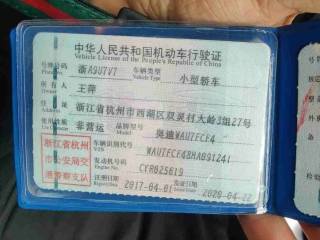 中华人民共和国机动车行驶证
Vehicle License of the People's Republic of China
号牌号码 浙A9U7V7 车辆类型 小型轿车
Plate No. Vehicle Type
所有人 王萍
Owner
住址 浙江省杭州市西湖区双灵村大岭3组27号
Address
使用性质 非营运 品牌型号 奥迪WAUTFCF4
Model
浙江省杭州
市公安局交
通警察支队
车辆识别代号
VIN
发动机号码 CYR025619
Engine No.
注册日期 2017-04-01 发证日期 2020-04-22
Register Date Issue Date